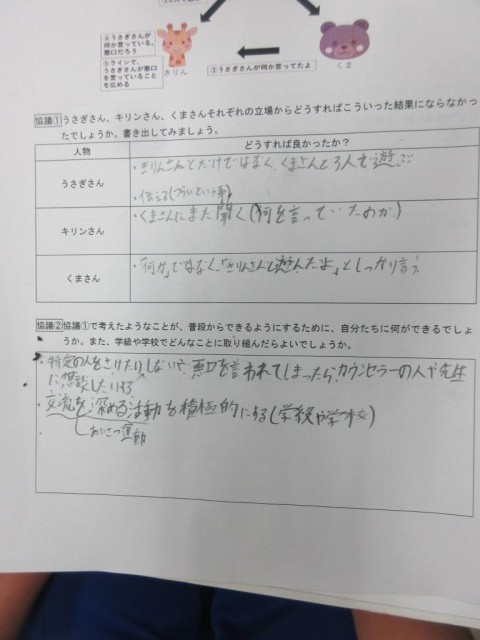 ④うさぎさんが
何か言っている。
悪口だろう
⑤ラインで、
うさぎさんが悪口
を言っていること
を広める
きりん
③うさぎさんが何か言ってたよ
くま
協議① うさぎさん、キリンさん、くまさんそれぞれの立場からどうすればこういった結果にならなかっ
たでしょうか。書き出してみましょう。
人物 どうすれば良かったか？
うさぎさん
・きりんさんとだけではなく、くまさんと3人で遊ぶ
・伝える
キリンさん
・くまさんにまた聞く(何を言っていたのか)
くまさん
・「何か」ではなく、「きりんさんと遊んだよ」としっかり言う
協議② 協議①で考えたようなことが、普段からできるようにするために、自分たちに何ができるでしょ
うか。また、学級や学校でどんなことに取り組んだらよいでしょうか。
・特定の人をさけたりしないや、悪口を言われてしまったら、カウンセラーの人や先生
に相談したりする
・交流を深める活動を積極的にする(学級や学校)
あいさつ運動
・